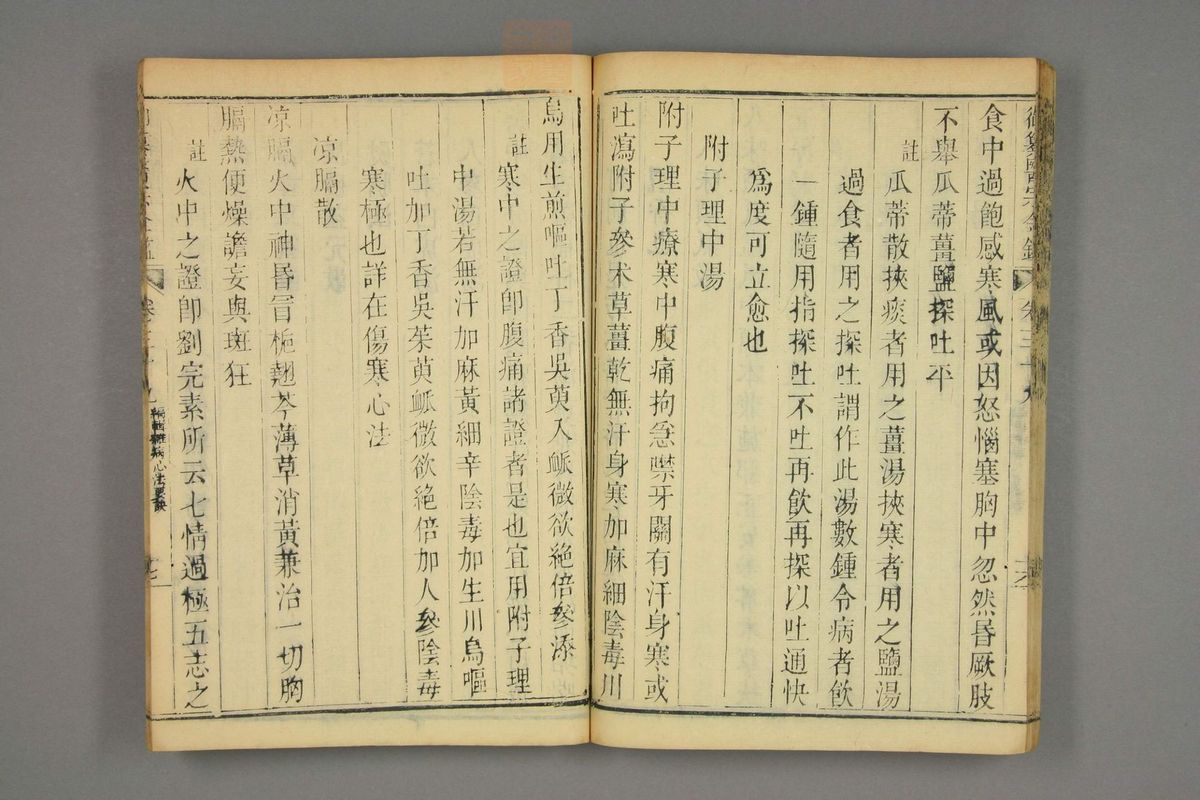 食中過飽感寒風或因怒惱塞胸中忽然昏厥肢
不舉瓜蒂薑鹽探吐平
註
瓜蒂散挾痰者用之薑湯挾寒者用之鹽湯
過食者用之探吐謂作此湯數鍾令病者飲
一鍾隨用指探吐不吐再飲再探以吐通快
爲度可立愈也
附子理中湯
附子理中療寒中腹痛拘急噤牙關有汗身寒或
吐瀉附子參朮草薑乾無汗身寒加麻細陰毒川
烏用生煎嘔吐丁香吳萸入衇微欲絕倍參添
註
寒中之證卽腹痛諸證者是也宜用附子理
中湯若無汗加麻黃細辛陰毒加生川烏嘔
吐加丁香吳茱萸衇微欲絕倍加人參陰毒
寒極也詳在傷寒心法
凉膈散
凉膈火中神昏冒梔翹芩薄草消黃兼治一切胸
膈熱便燥譫妄與斑狂
註
火中之證卽劉完素所云七情過極五志之
卷三十九
編輯雜病心法要訣